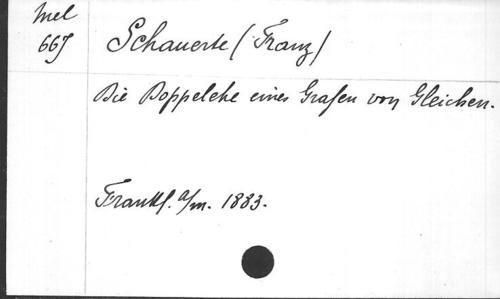 Mel
667
Schauerte (Franz)
Die Doppelehe eines Grafen von Gleichen.
Frankf. a/m. 1883.